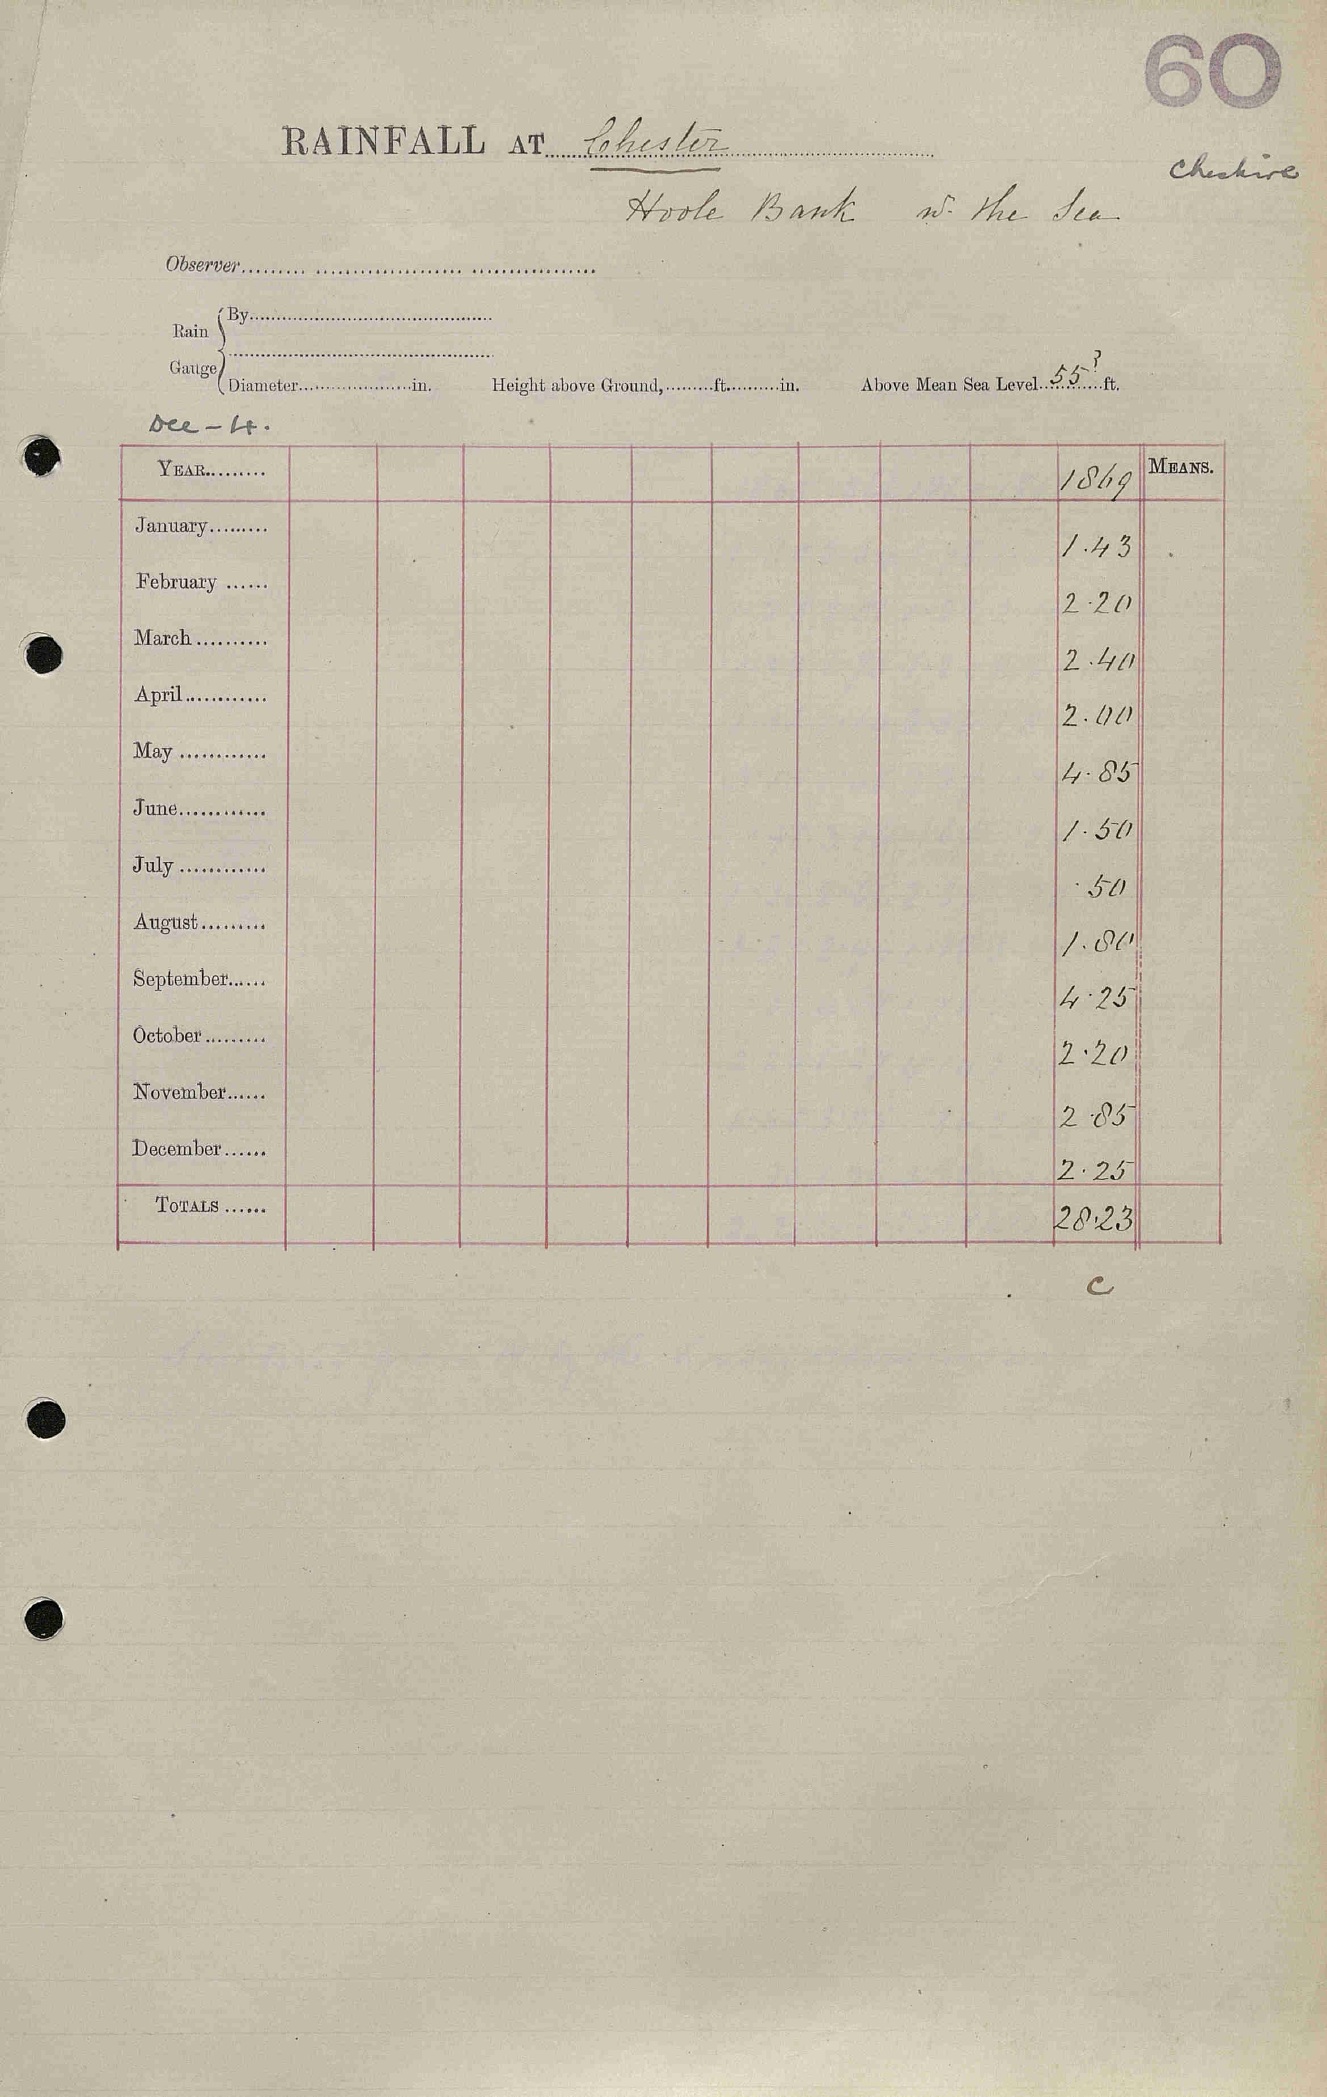 60
RAINFALL AT Chester
Cheshire
Hoole Bank the Sea
Observer
Rain Gauge
By
Diameter in. Height above Ground, ft. in. Above Mean Sea Level 55? ft.
Dee - 4.
YEAR 1869 MEANS.
January 1.43
February 2.20
March 2.40
April 2.00
May 4.85
June 1.50
July .50
August 1.80
September 4.25
October 2.20
November 2.85
December 2.25
TOTALS 28.23
C